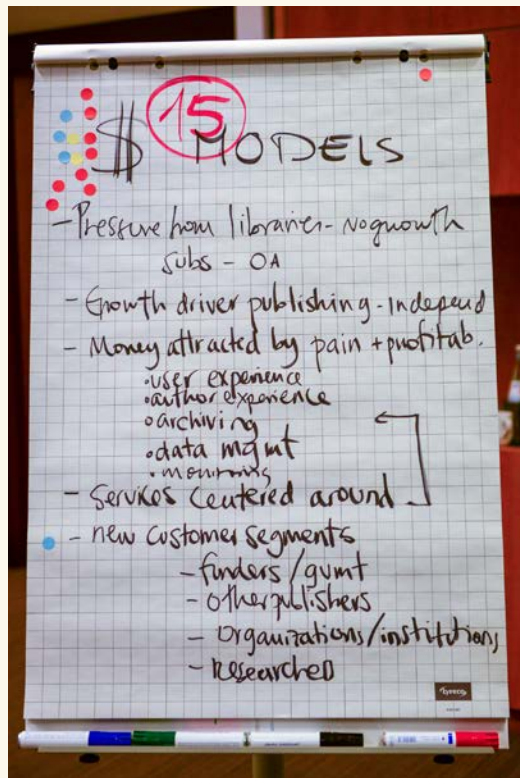 15
$ MODELS
- Pressure from libraries - No growth
subs - OA
- Growth driver publishing - Independ
- Money attracted by pain + profitab.
• user experience
• author experience
• archiving
• data mgmt
- Services centered around
- new customer segments
- funders/gvmt
- other publishers
- organizations/institutions